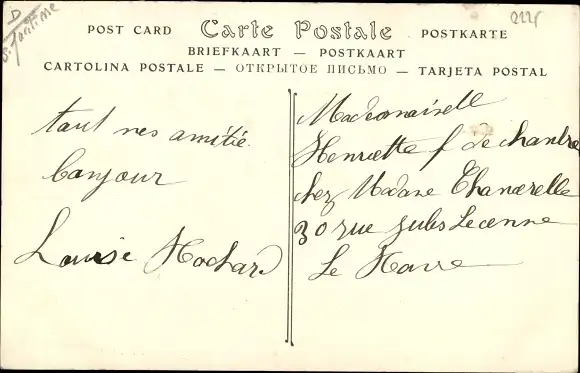 D
POST CARD Carte Postale POSTKARTE
BRIEFKAART — POSTKAART
CARTOLINA POSTALE — ОТКРЫТОЕ ПИСЬМО — TARJETA POSTAL
taut nes amitié
Conjour
Louise Hochard
Mademoiselle
Henriette f de chambre
chez Madame Chancerelle
30 rue jules Lecenne
Le Havre